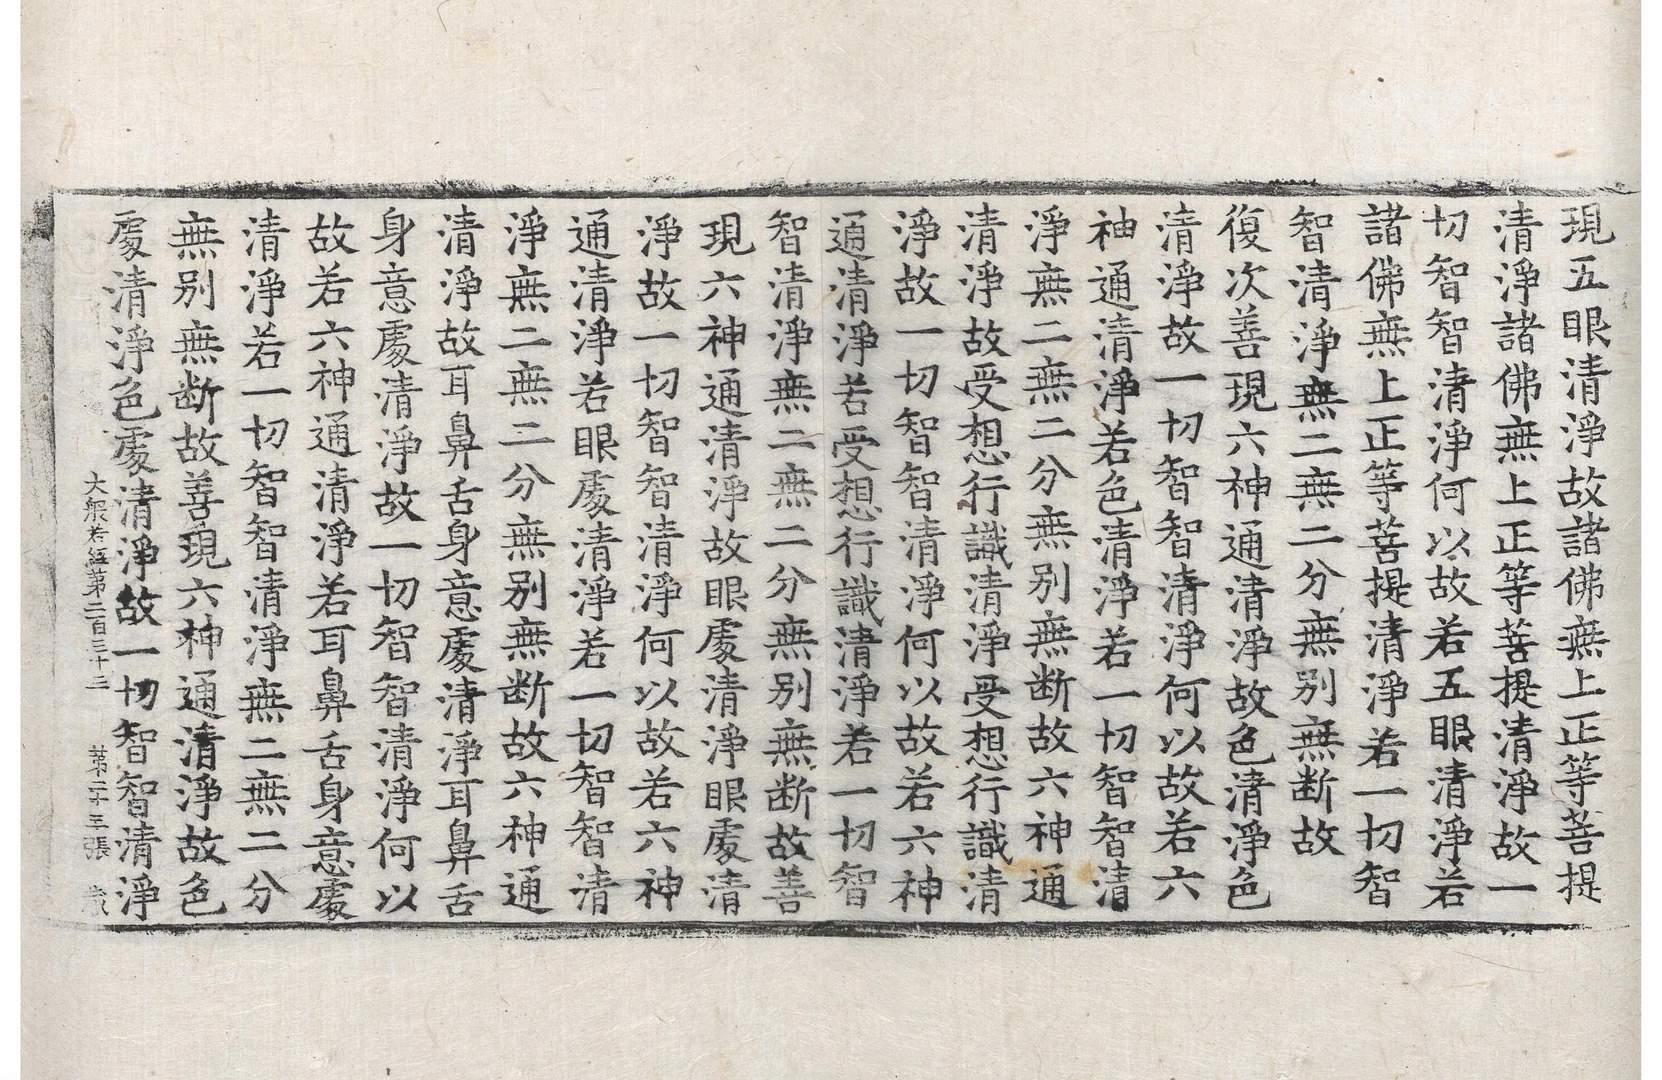 現五眼清淨故諸佛無上正等菩提
清淨諸佛無上正等菩提清淨故一
切智智清淨何以故若五眼清淨若
諸佛無上正等菩提清淨若一切智
智清淨無二無二分無別無断故
復次善現六神通清淨故色清淨色
清淨故一切智智清淨何以故若六
神通清淨若色清淨若一切智智清
淨無二無二分無別無断故六神通
清淨故受想行識清淨受想行識清
淨故一切智智清淨何以故若六神
通清淨若受想行識清淨若一切智
智清淨無二無二分無別無断故善
現六神通清淨故眼處清淨眼處清
淨故一切智智清淨何以故若六神
通清淨若眼處清淨若一切智智清
淨無二無二分無別無断故六神通
清淨故耳鼻舌身意處清淨耳鼻舌
身意處清淨故一切智智清淨何以
故若六神通清淨若耳鼻舌身意處
清淨若一切智智清淨無二無二分
無別無断故善現六神通清淨故色
處清淨色處清淨故一切智智清淨
大般若經第二百三十二 第二十三張